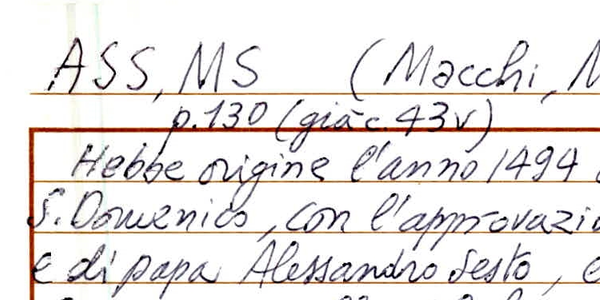 ASS, MS (Macchi, M
p. 130 (già c. 43v)
Hebbe origine l'anno 1494
S. Domenico, con l'approvazio
e di papa Alessandro Sesto, e